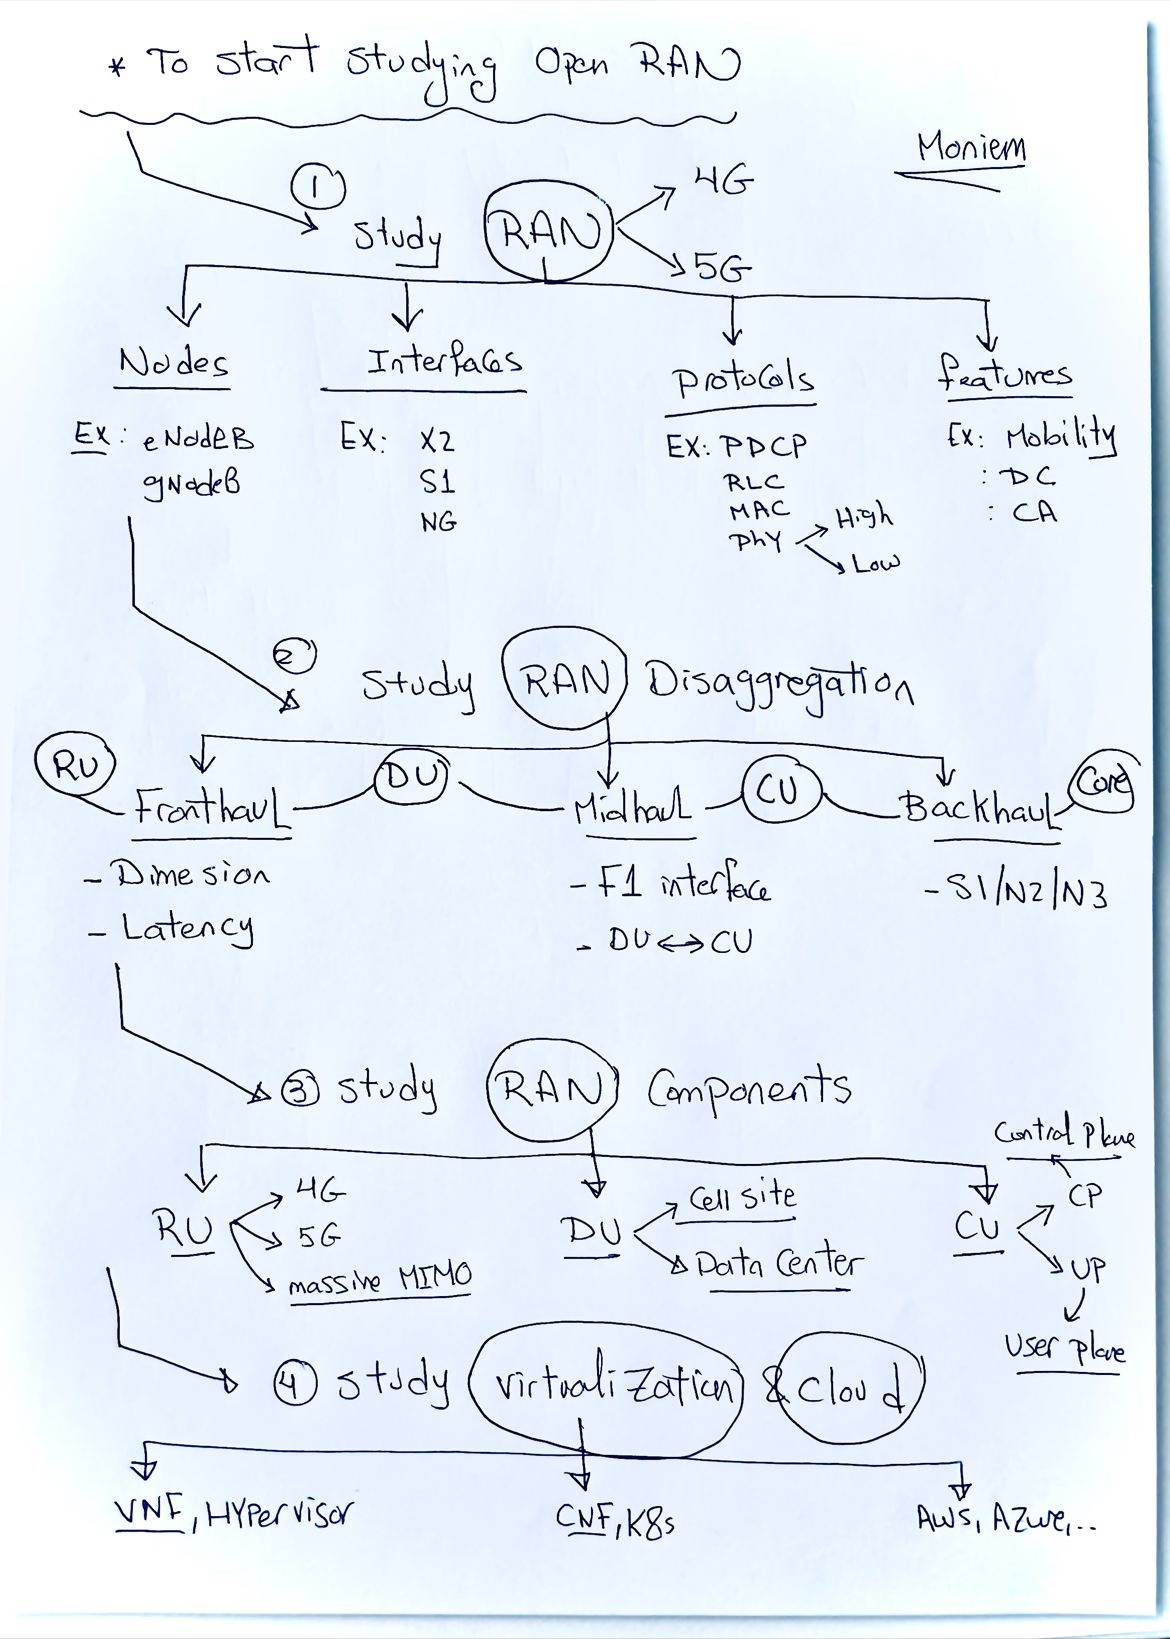 * To start studying Open RAN
Moniem
1
Study RAN
4G
5G
Nodes
Ex: eNodeB
gNodeB
Interfaces
Ex: X2
S1
NG
Protocols
Ex: PDCP
RLC
MAC
PHY
High
Low
features
Ex: Mobility
: DC
: CA
2
Study RAN Disaggregation
RU Fronthaul DU Midhaul CU Backhaul Core
- Dimesion
- Latency
- F1 interface
- DU ↔ CU
- S1/N2/N3
3 Study RAN Components
RU
4G
5G
massive MIMO
DU
Cell site
Data Center
CU
CP
Control Plane
UP
User plane
4 Study Virtualization & Cloud
VNF, HYpervisor
CNF, K8s
AWS, AZure,..